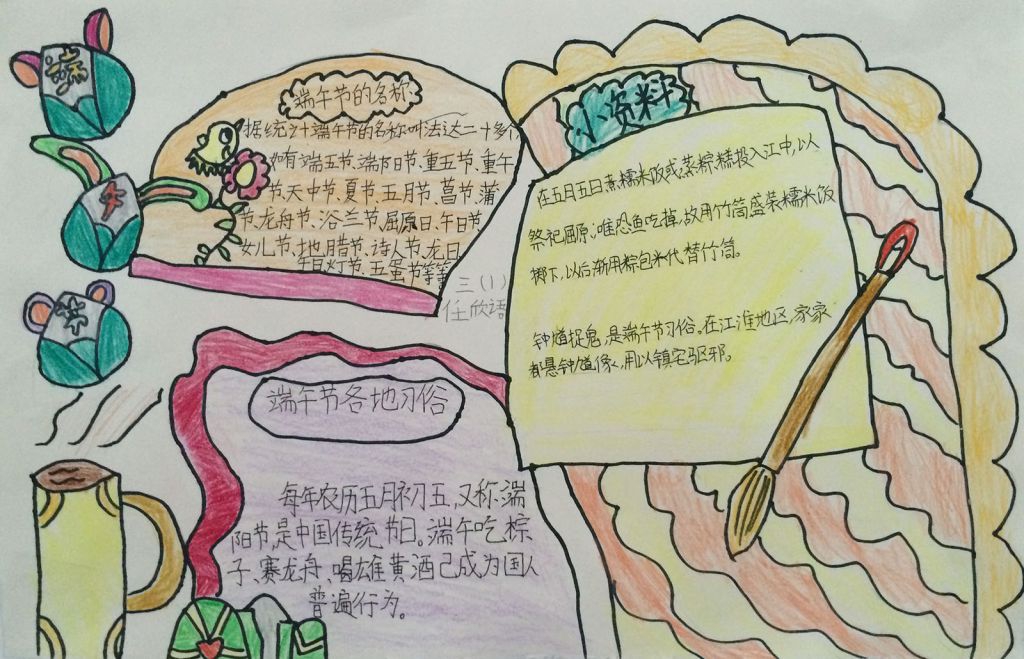 端
午
节
端午节的名称
据统计端午节的名称叫法达二十多个
如有端五节、端阳节、重五节、重午
节、天中节、夏节、五月节、菖节、蒲
节、龙舟节、浴兰节、屈原日、午日节、
女儿节、地腊节、诗人节、龙日、
午日、灯节、五蛋节等等
三(1)
任欣语
小资料
在五月五日煮糯米饭或蒸粽糕投入江中,以
祭祀屈原,唯恐鱼吃掉,故用竹筒盛装糯米饭
掷下,以后渐用粽包米代替竹筒。
钟馗捉鬼,是端午节习俗。在江淮地区,家家
都悬钟馗像,用以镇宅驱邪。
端午节各地习俗
每年农历五月初五,又称端
阳节,是中国传统节日。端午吃粽
子、赛龙舟、喝雄黄酒已成为国人
普遍行为。